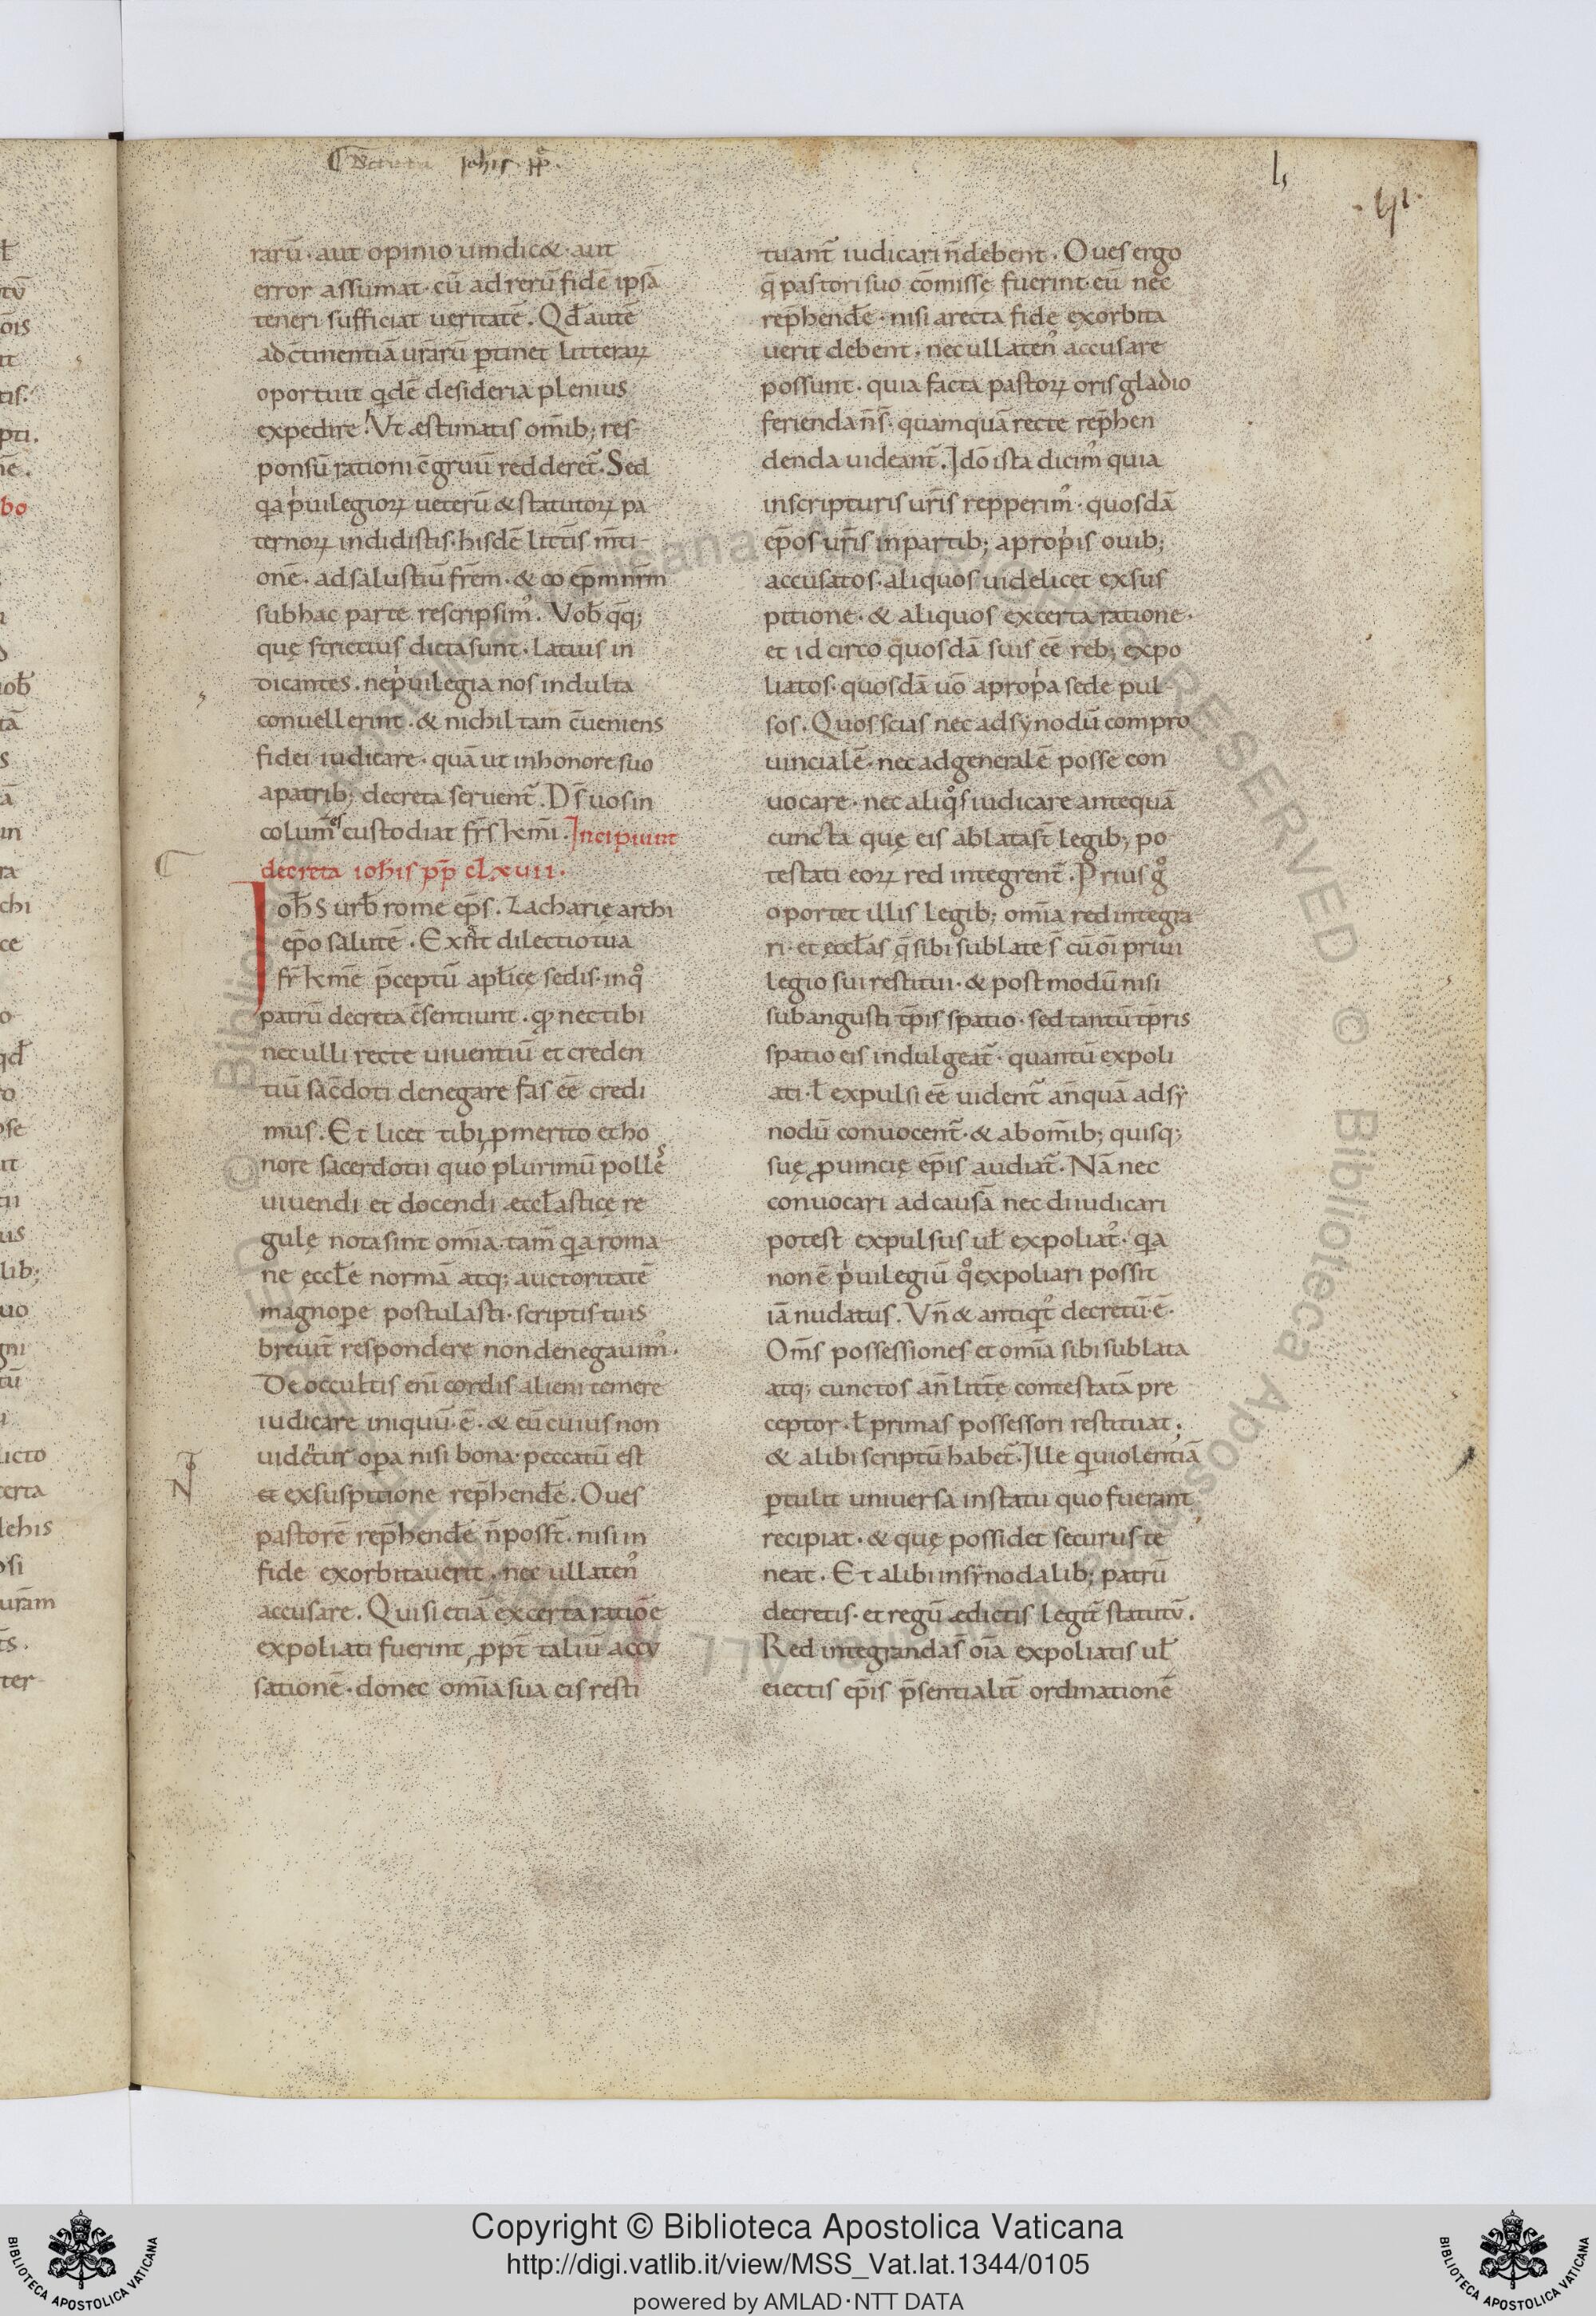 Decreta Johis pp
rarū. aut opinio uindic&. aut
error assumat. cū ad rerū fidē ipsā
teneri sufficiat ueritatē. Qd̄ autē
ad c̄tinentiā ur̄arū ꝑtinet litterarꝝ
oportuit qdē desideria plenius
expedire. Vt æstimatis om̄ib; res
ponsū rationi c̄gruū redderet̄. Sed
qa pͥuilegiorꝝ ueterū & statutorꝝ pa
ternorꝝ indidistis. hisdē litt̄is m̄ti
onē. ad salustiū fr̄em. & co ep̄m nr̄m
sub hac parte rescripsim᾿. Vob̄ qq;
quę strictius dicta sunt. latius in
dicantes. ne pͥuilegia nos indulta
conuellerint. & nichil tam c̄ueniens
fidei iudicare. quā ut in honore suo
a patrib; decreta seruent̄. D̄s uos in
colum̄es custodiat fr̄s km̄i. Incipiunt
decreta ioh̄is pp̄ clxvii.
Ioh̄s urb̄ rome ep̄s. Zacharię archi
ep̄o salutē. Exͥgit dilectio tua
fr̄ km̄e p̄ceptū apl̄icę sedis. in qͦ
patrū decreta c̄sentiunt. ꝙ nec tibi
nec ulli recte uiuentiū et creden
tiū sac̄doti denegare fas eē credi
mus. Et licet tibi ꝓ merito et ho
nore sacerdotii quo plurimū polles̄
uiuendi et docendi eccl̄asticę re
gulę nota sint om̄ia. tam̄ qa roma
ne ęccl̄e normā atq; auctoritatē
magnope postulasti. scriptis tuis
breuit̄ respondere non denegauim᾿.
De occultis eni cordis alieni temere
iudicare iniquū. ē. & eū cuius non
uidetur opa nisi bona. peccatū est
et ex suspitione rep̄hende᷑. Oues
pastorē rep̄hende᷑ n̄ poss̄t. nisi in
fide exorbitauerit. nec ullaten᾿
accusare. Qui si etiā ex certa ratiōe
expoliati fuerint ꝓpt̄ taliū accu
sationē. donec om̄ia sua eis resti
tuant̄ iudicari n̄ debent. Oues ergo
q̄ pastori suo cōmissę fuerint eū nec
rep̄hende᷑. nisi a recta fide exorbita
uerit debent. nec ullaten᾿ accusare
possunt. quia facta pastorꝝ oris gladio
ferienda n̄ s̄. quamquā recte rep̄hen
denda uideant̄. Idō ista dicim᾿ quia
in scripturis uris repperim᾿. quosdā
ep̄os ur̄is in partib; a propͥis ouib;
accusatos. aliquos uidelicet ex sus
pitione. & aliquos ex certa ratione.
et id circo quosdā suis eē reb; expo
liatos. quosdā uō a propͥa sede pul
sos. Quos scias nec ad synodū compro
uincialē. nec ad generalē posse con
uocare. nec aliqͦs iudicare antequā
cuncta quę eis ablata s̄t legib; po
testati eorꝝ redintegrent̄. Prius gͦ
oportet illis legib; om̄ia redintegra
ri. et ęccl̄as q̄ sibi sublate s̄ cū oi priui
legio sui restitui. & post modū nisi
sub angusti tp̄is spatio. sed tantū tp̄ris
spatio eis indulgeat̄. quantū expoli
ati. l̄ expulsi eē uident̄ an̄quā ad sy
nodū conuocent̄. & ab om̄ib; quisq;
suę ꝓuincię ep̄is audiat̄. Nā nec
conuocari ad causā nec diiudicari
potest expulsus ul̄ expoliat᾿. qa
non ē pͥuilegiū qͦ expoliari possit
iā nudatus. Vn̄ & antiqt᾿ decretū. ē.
Om̄s possessiones et om̄ia sibi sublata
atq; cunctos an̄ litt̄e contestatā pre
ceptor. l̄ primas possessori restituat;
& alibi scriptū habet̄. Ille q uiolentiā
ꝑtulit uniuersa in statu quo fuerant
recipiat. & quę possidet securus te
neat. Et alibi in synodalib; patrū
decretis. et regū ædictis legit̄ statutū.
Redintegranda s̄ oīa expoliatis ul̄
eiectis ep̄is p̄sentialit̄ ordinationē
Copyright © Biblioteca Apostolica Vaticana
http://digi.vatlib.it/view/MSS_Vat.lat.1344/0105
powered by AMLAD·NTT DATA